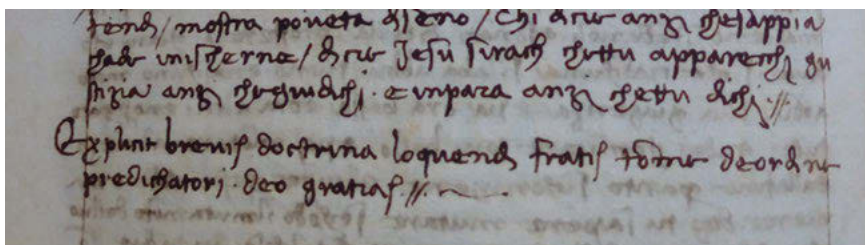 tend / mostra poveta di seno / Chi dicie anzi che sappia
chade inischerne / dicie Jesu sirach chettu apparecchi giu
stizia anzi chegiudichi . e inpara anzi chettu dichi .//.
Explicit brevis doctrina loquendi fratis tome deordine
predichatori . deo gratias .//.